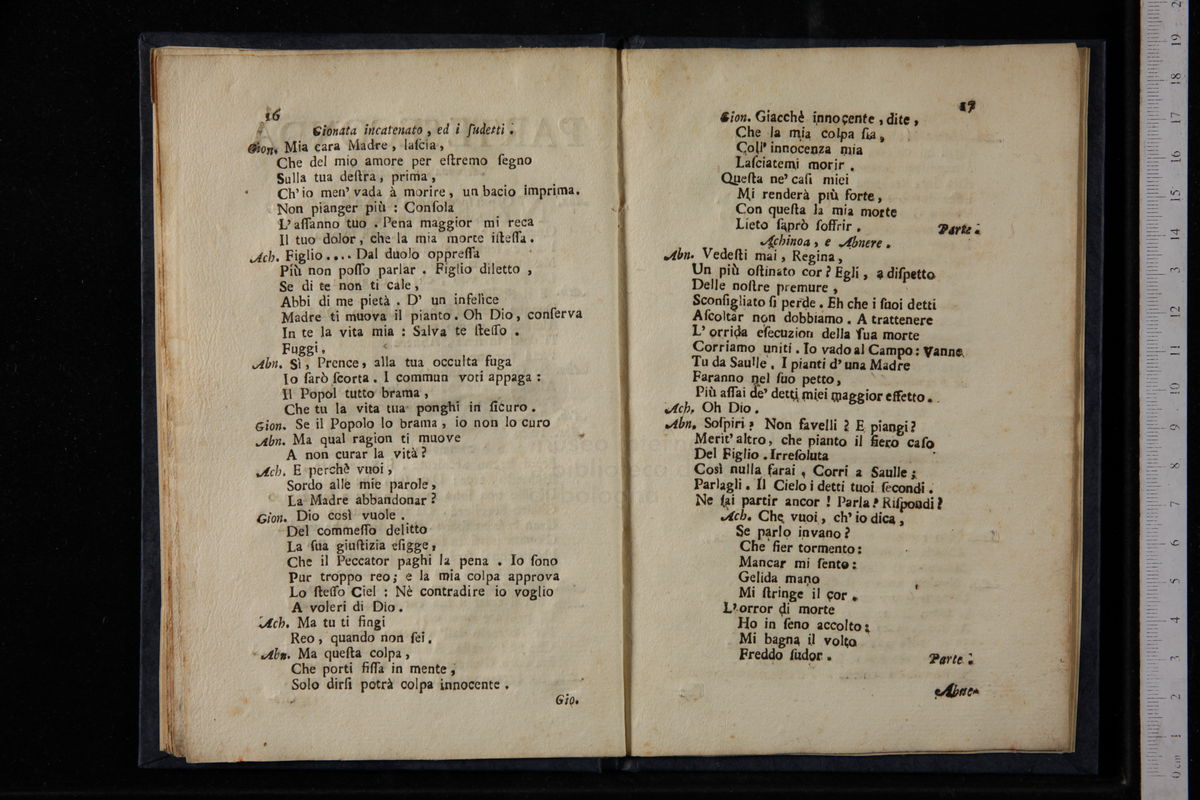 16
Gionata incatenato, ed i ſudetti.
Gion. Mia cara Madre, laſcia,
Che del mio amore per eſtremo ſegno
Sulla tua deſtra, prima,
Ch'io men' vada à morire, un bacio imprima.
Non pianger più : Conſola
L'affanno tuo . Pena maggior mi reca
Il tuo dolor, che la mia morte iſteſſa.
Ach. Figlio.... Dal duolo oppreſſa
Più non poſſo parlar . Figlio diletto ,
Se di te non ti cale,
Abbi di me pietà . D' un infelice
Madre ti muova il pianto. Oh Dio, conſerva
In te la vita mia : Salva te ſteſſo .
Fuggi,
Abn. Sì, Prence, alla tua occulta fuga
Io farò ſcorta . I commun voti appaga :
Il Popol tutto brama,
Che tu la vita tua ponghi in ſicuro .
Gion. Se il Popolo lo brama, io non lo curo
Abn. Ma qual ragion ti muove
A non curar la vità?
Ach. E perchè vuoi,
Sordo alle mie parole,
La Madre abbandonar?
Gion. Dio così vuole .
Del commeſſo delitto
La ſua giuſtizia eſigge,
Che il Peccator paghi la pena . Io ſono
Pur troppo reo; e la mia colpa approva
Lo ſteſſo Ciel : Nè contradire io voglio
A voleri di Dio.
Ach. Ma tu ti fingi
Reo, quando non ſei.
Abn. Ma queſta colpa,
Che porti fiſſa in mente,
Solo dirſi potrà colpa innocente .
Gio.
17
Gion. Giacchè innocente, dite,
Che la mia colpa ſia,
Coll' innocenza mia
Laſciatemi morir .
Queſta ne' caſi miei
Mi renderà più forte,
Con queſta la mia morte
Lieto ſaprò ſoffrir . Parte.
Achinoa, e Abnere.
Abn. Vedeſti mai, Regina,
Un più oſtinato cor? Egli, a diſpetto
Delle noſtre premure,
Sconſigliato ſi perde . Eh che i ſuoi detti
Aſcoltar non dobbiamo . A trattenere
L' orrida eſecuzion della ſua morte
Corriamo uniti . Io vado al Campo: Vanne
Tu da Saulle . I pianti d' una Madre
Faranno nel ſuo petto,
Più aſſai de' detti miei maggior effetto.
Ach. Oh Dio.
Abn. Soſpiri? Non favelli? E piangi?
Merit' altro, che pianto il fiero caſo
Del Figlio . Irreſoluta
Così nulla farai . Corri a Saulle;
Parlagli. Il Cielo i detti tuoi ſecondi .
Ne ſai partir ancor ! Parla? Riſpondi?
Ach. Che vuoi, ch' io dica,
Se parlo invano?
Che fier tormento:
Mancar mi ſento:
Gelida mano
Mi ſtringe il cor .
L'orror di morte
Ho in ſeno accolto:
Mi bagna il volto
Freddo ſudor . Parte.
Abne-